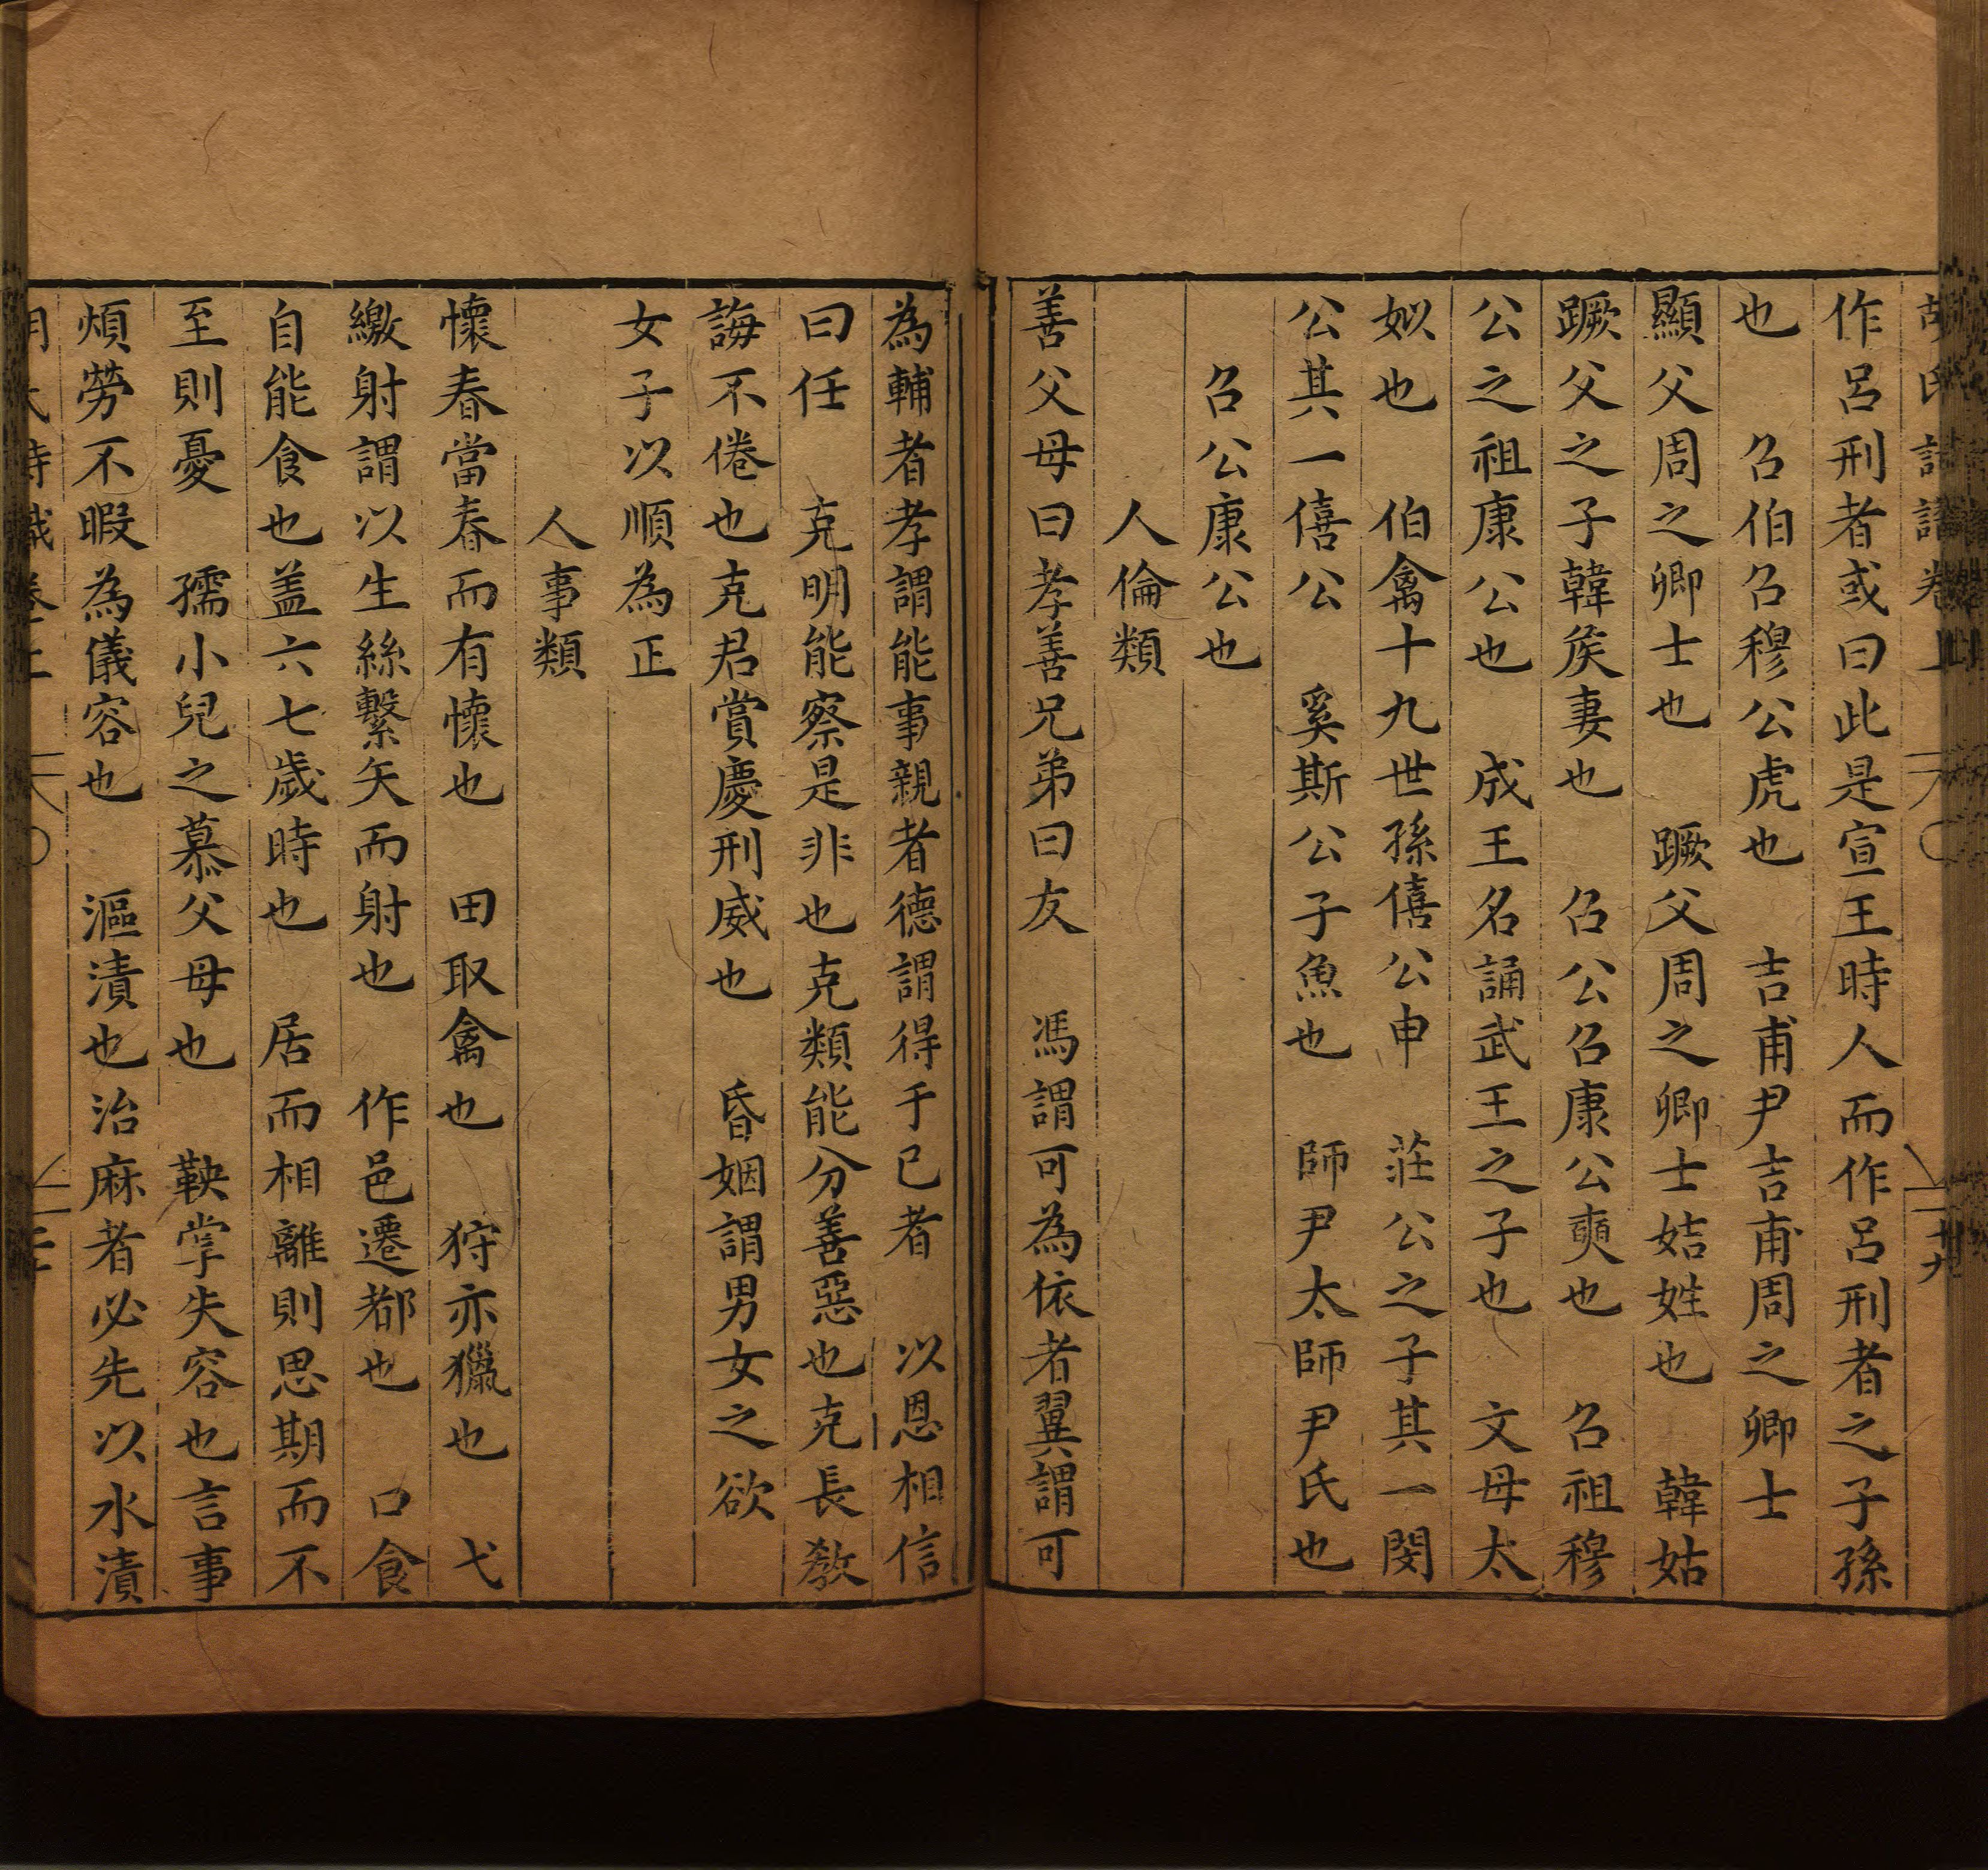 作呂刑者或曰此是宣王時人而作呂刑者之子孫
也　召伯召穆公虎也　吉甫尹吉甫周之卿士
顯父周之卿士也　蹶父周之卿士姞姓也　韓姞
蹶父之子韓矦妻也　召公召康公奭也　召祖穆
公之祖康公也　成王名誦武王之子也　文母太
姒也　伯禽十九世孫僖公申　莊公之子其一閔
公其一僖公　奚斯公子魚也　師尹太師尹氏也
召公康公也
人倫類
善父母曰孝善兄弟曰友　馮謂可為依者翼謂可
為輔者孝謂能事親者德謂得于己者　以恩相信
曰任　克明能察是非也克類能分善惡也克長教
誨不倦也克君賞慶刑威也　昏姻謂男女之欲
女子以順為正
人事類
懷春當春而有懷也　田取禽也　狩亦獵也　弋
繳射謂以生絲繫矢而射也　作邑遷都也　口食
自能食也盖六七歲時也　居而相離則思期而不
至則憂　孺小兒之慕父母也　鞅掌失容也言事
煩勞不暇為儀容也　漚漬也治麻者必先以水漬